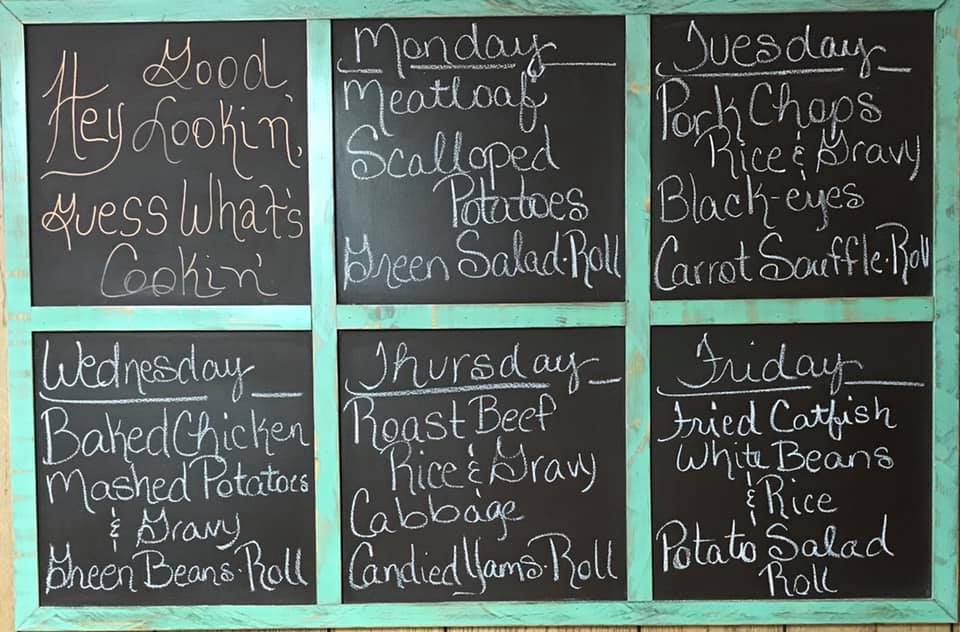 Hey Good
Lookin',
Guess What's
Cookin'
Monday
Meatloaf
Scalloped
Potatoes
Green Salad·Roll
Tuesday
Pork Chops
Rice & Gravy
Black-eyes
Carrot Souffle·Roll
Wednesday
Baked Chicken
Mashed Potatoes
& Gravy
Green Beans·Roll
Thursday
Roast Beef
Rice & Gravy
Cabbage
Candied Yams·Roll
Friday
Fried Catfish
White Beans
& Rice
Potato Salad
Roll